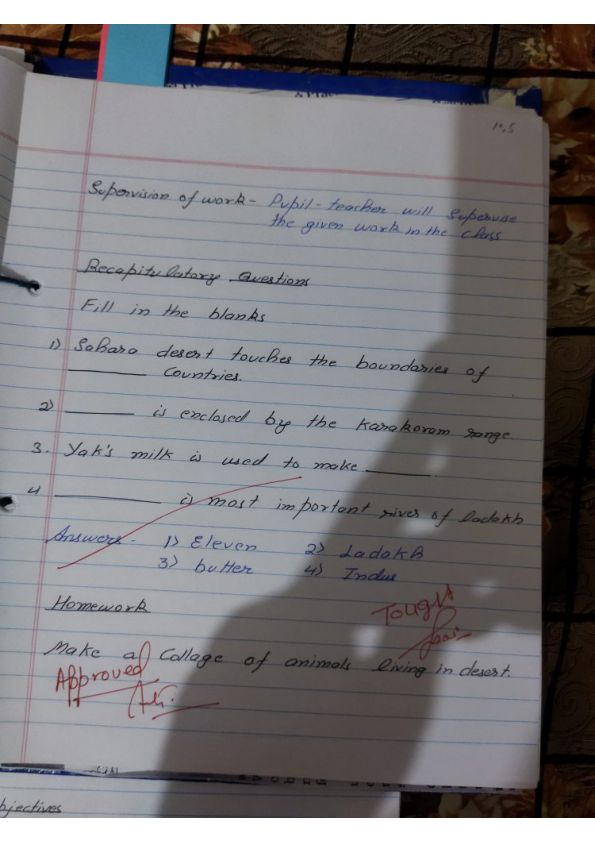 Supervision of work - Pupil-teacher will supervise
the given work in the class
Recapitulatory Questions
Fill in the blanks
1) Sahara desert touches the boundaries of
________ countries.
2) ________ is enclosed by the Karakoram range
3. Yak's milk is used to make ________
4 ________ is most important river of ladakh
Answers - 1) Eleven 2) Ladakh
3) butter 4) Indus
Homework
Tought
Make a Collage of animals living in desert.
Approved
bjectives